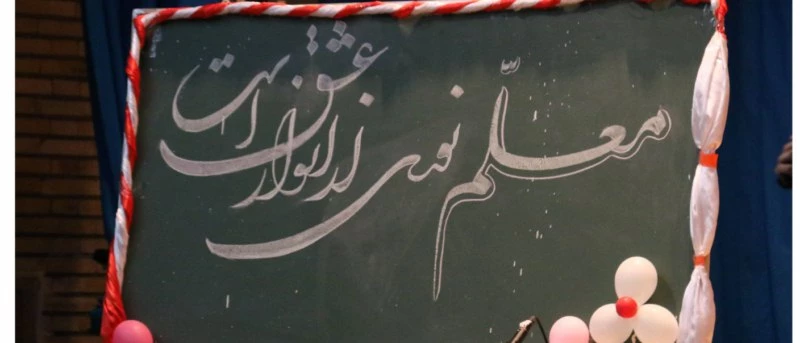 معلّم نوری از انوار عشق الهیست